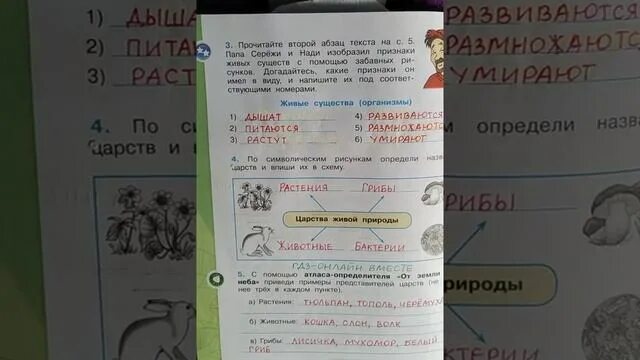 3. Прочитайте второй абзац текста на с. 5.
Папа Серёжи и Нади изобразил признаки
живых существ с помощью забавных ри-
сунков. Догадайтесь, какие признаки он
имел в виду, и напишите их под соответ-
ствующими номерами.
Живые существа (организмы)
1) ДЫШАТ
4) РАЗВИВАЮТСЯ
2) ПИТАЮТСЯ
5) РАЗМНОЖАЮТС
3) РАСТУТ
6) УМИРАЮТ
4. По символическим рисункам определи назв
царств и впиши их в схему.
РАСТЕНИЯ
ГРИБЫ
Царства живой природы
ЖИВОТНЫЕ
БАКТЕРИИ
ГДЗ-ОНЛАЙН ВМЕСТЕ
5. С помощью атласа-определителя «От земли
неба» приведи примеры представителей царств (не
нее трёх в каждом пункте).
а) Растения: ТЮЛЬПАН, ТОПОЛЬ, ЧЕРЁМУХ
б) Животные: КОШКА, СЛОН, ВОЛК
в) Грибы: ЛИСИЧКА, МУХОМОР, БЕЛЫЙ
ГРИБ
1) ДЫШАТ
2) ПИТАЮТСЯ
3) РАСТ
4. По си
царств и впи
РАЗВИВАЮТСЯ
РАЗМНОЖАЮТСЯ
УМИРАЮТ
определи назва
природы